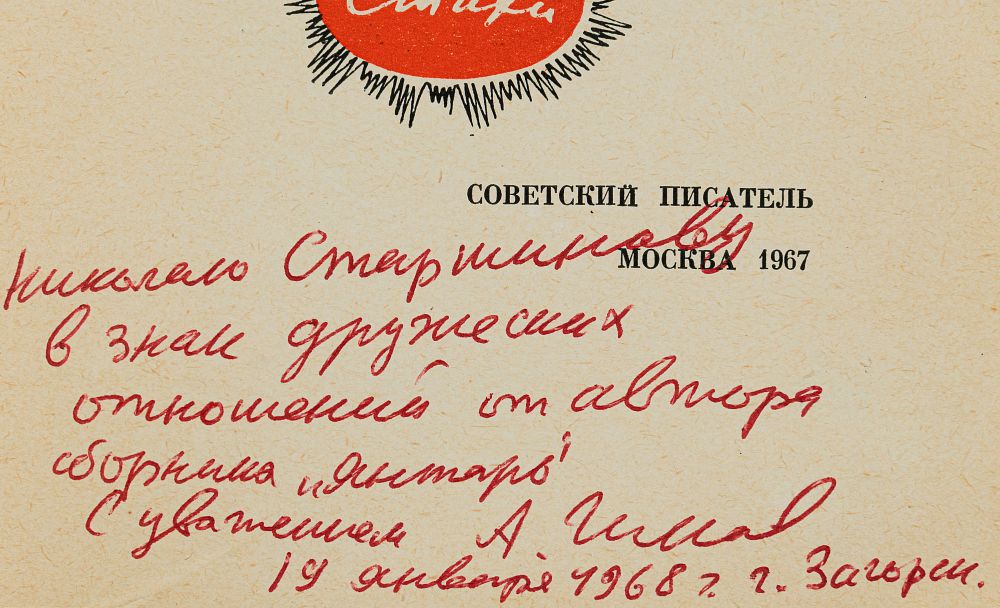 Стихи
СОВЕТСКИЙ ПИСАТЕЛЬ
МОСКВА 1967
Николаю Старшинову
в знак дружеских
отношений от автора
сборника „Янтарь"
С уважением А.
19 января 1968 г. г. Загорск.